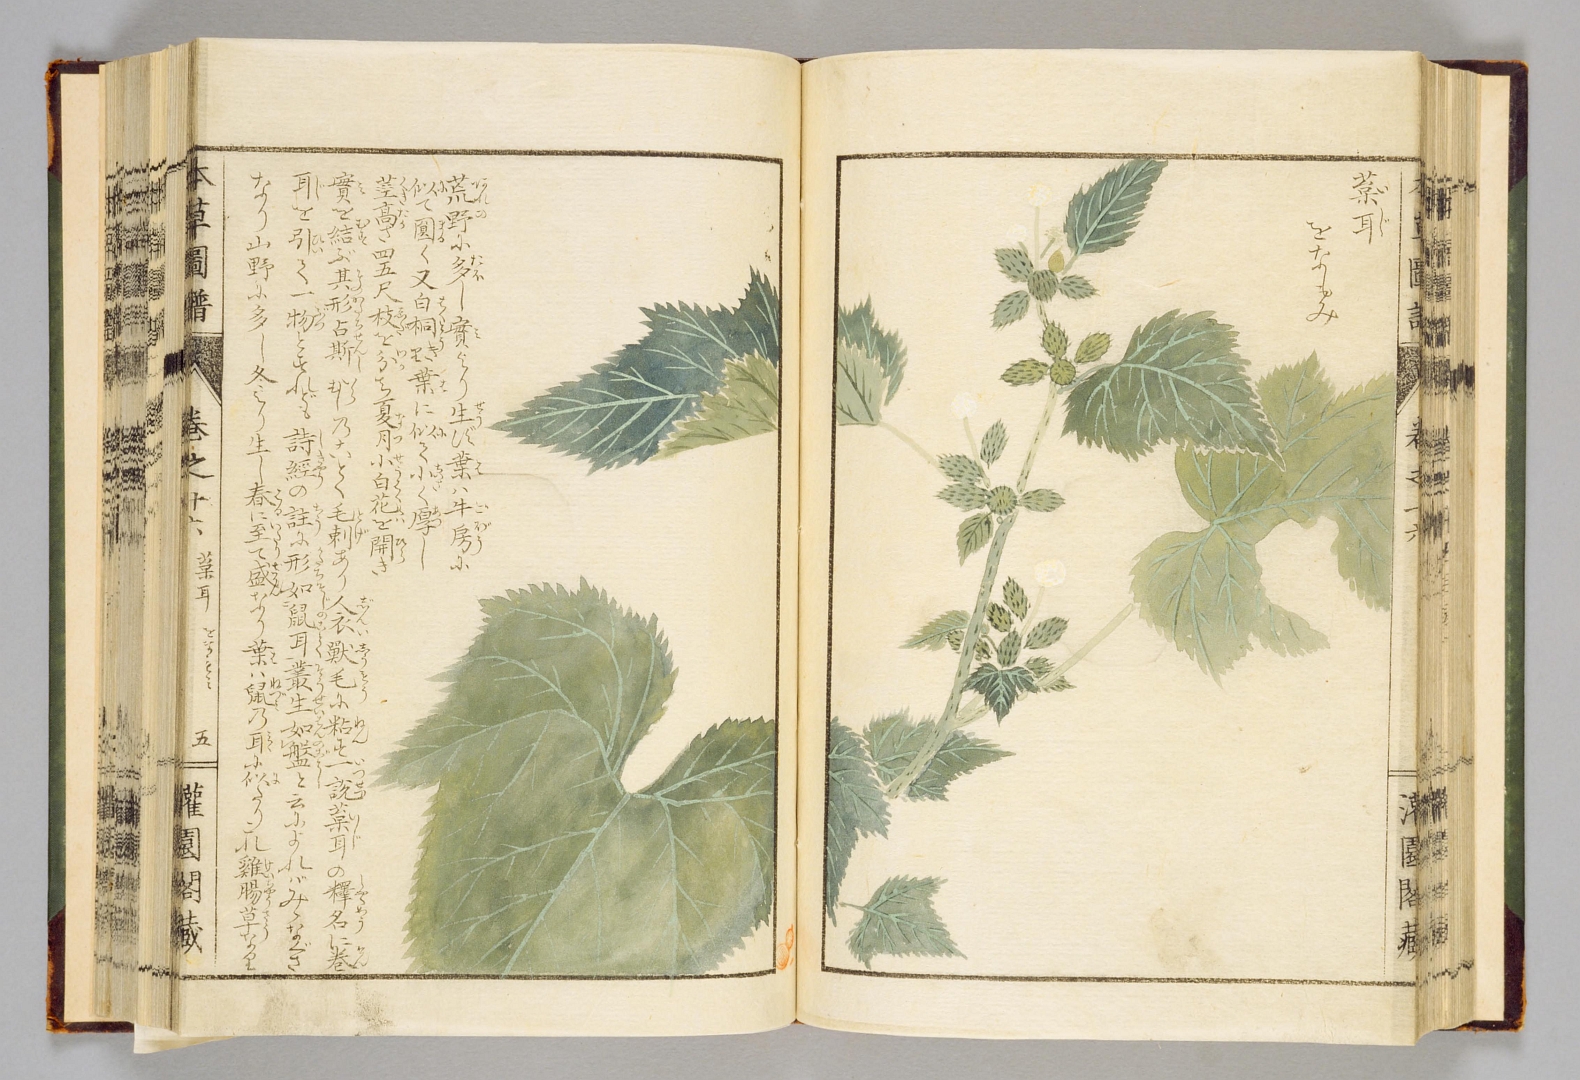 葈耳
をなもみ
荒野に多し實より生ず葉ハ牛房に
似て圓く又白桐の葉に似て小く厚し
莖高さ四五尺枝を分ち夏月小白花を開き
實を結ぶ其形占斯のごとく毛刺あり人衣獸毛に粘す一説葈耳の釋名に巻
耳を引て一物とすれども詩經の註に形如鼠耳叢生如盤と云によればみゝなぐさ
なり山野に多し冬より生し春に至て盛なり葉ハ鼠乃耳に似たりこれ雞腸草なり
本草圖譜
卷之十六
葈耳
をなもみ
五
灌園閣藏